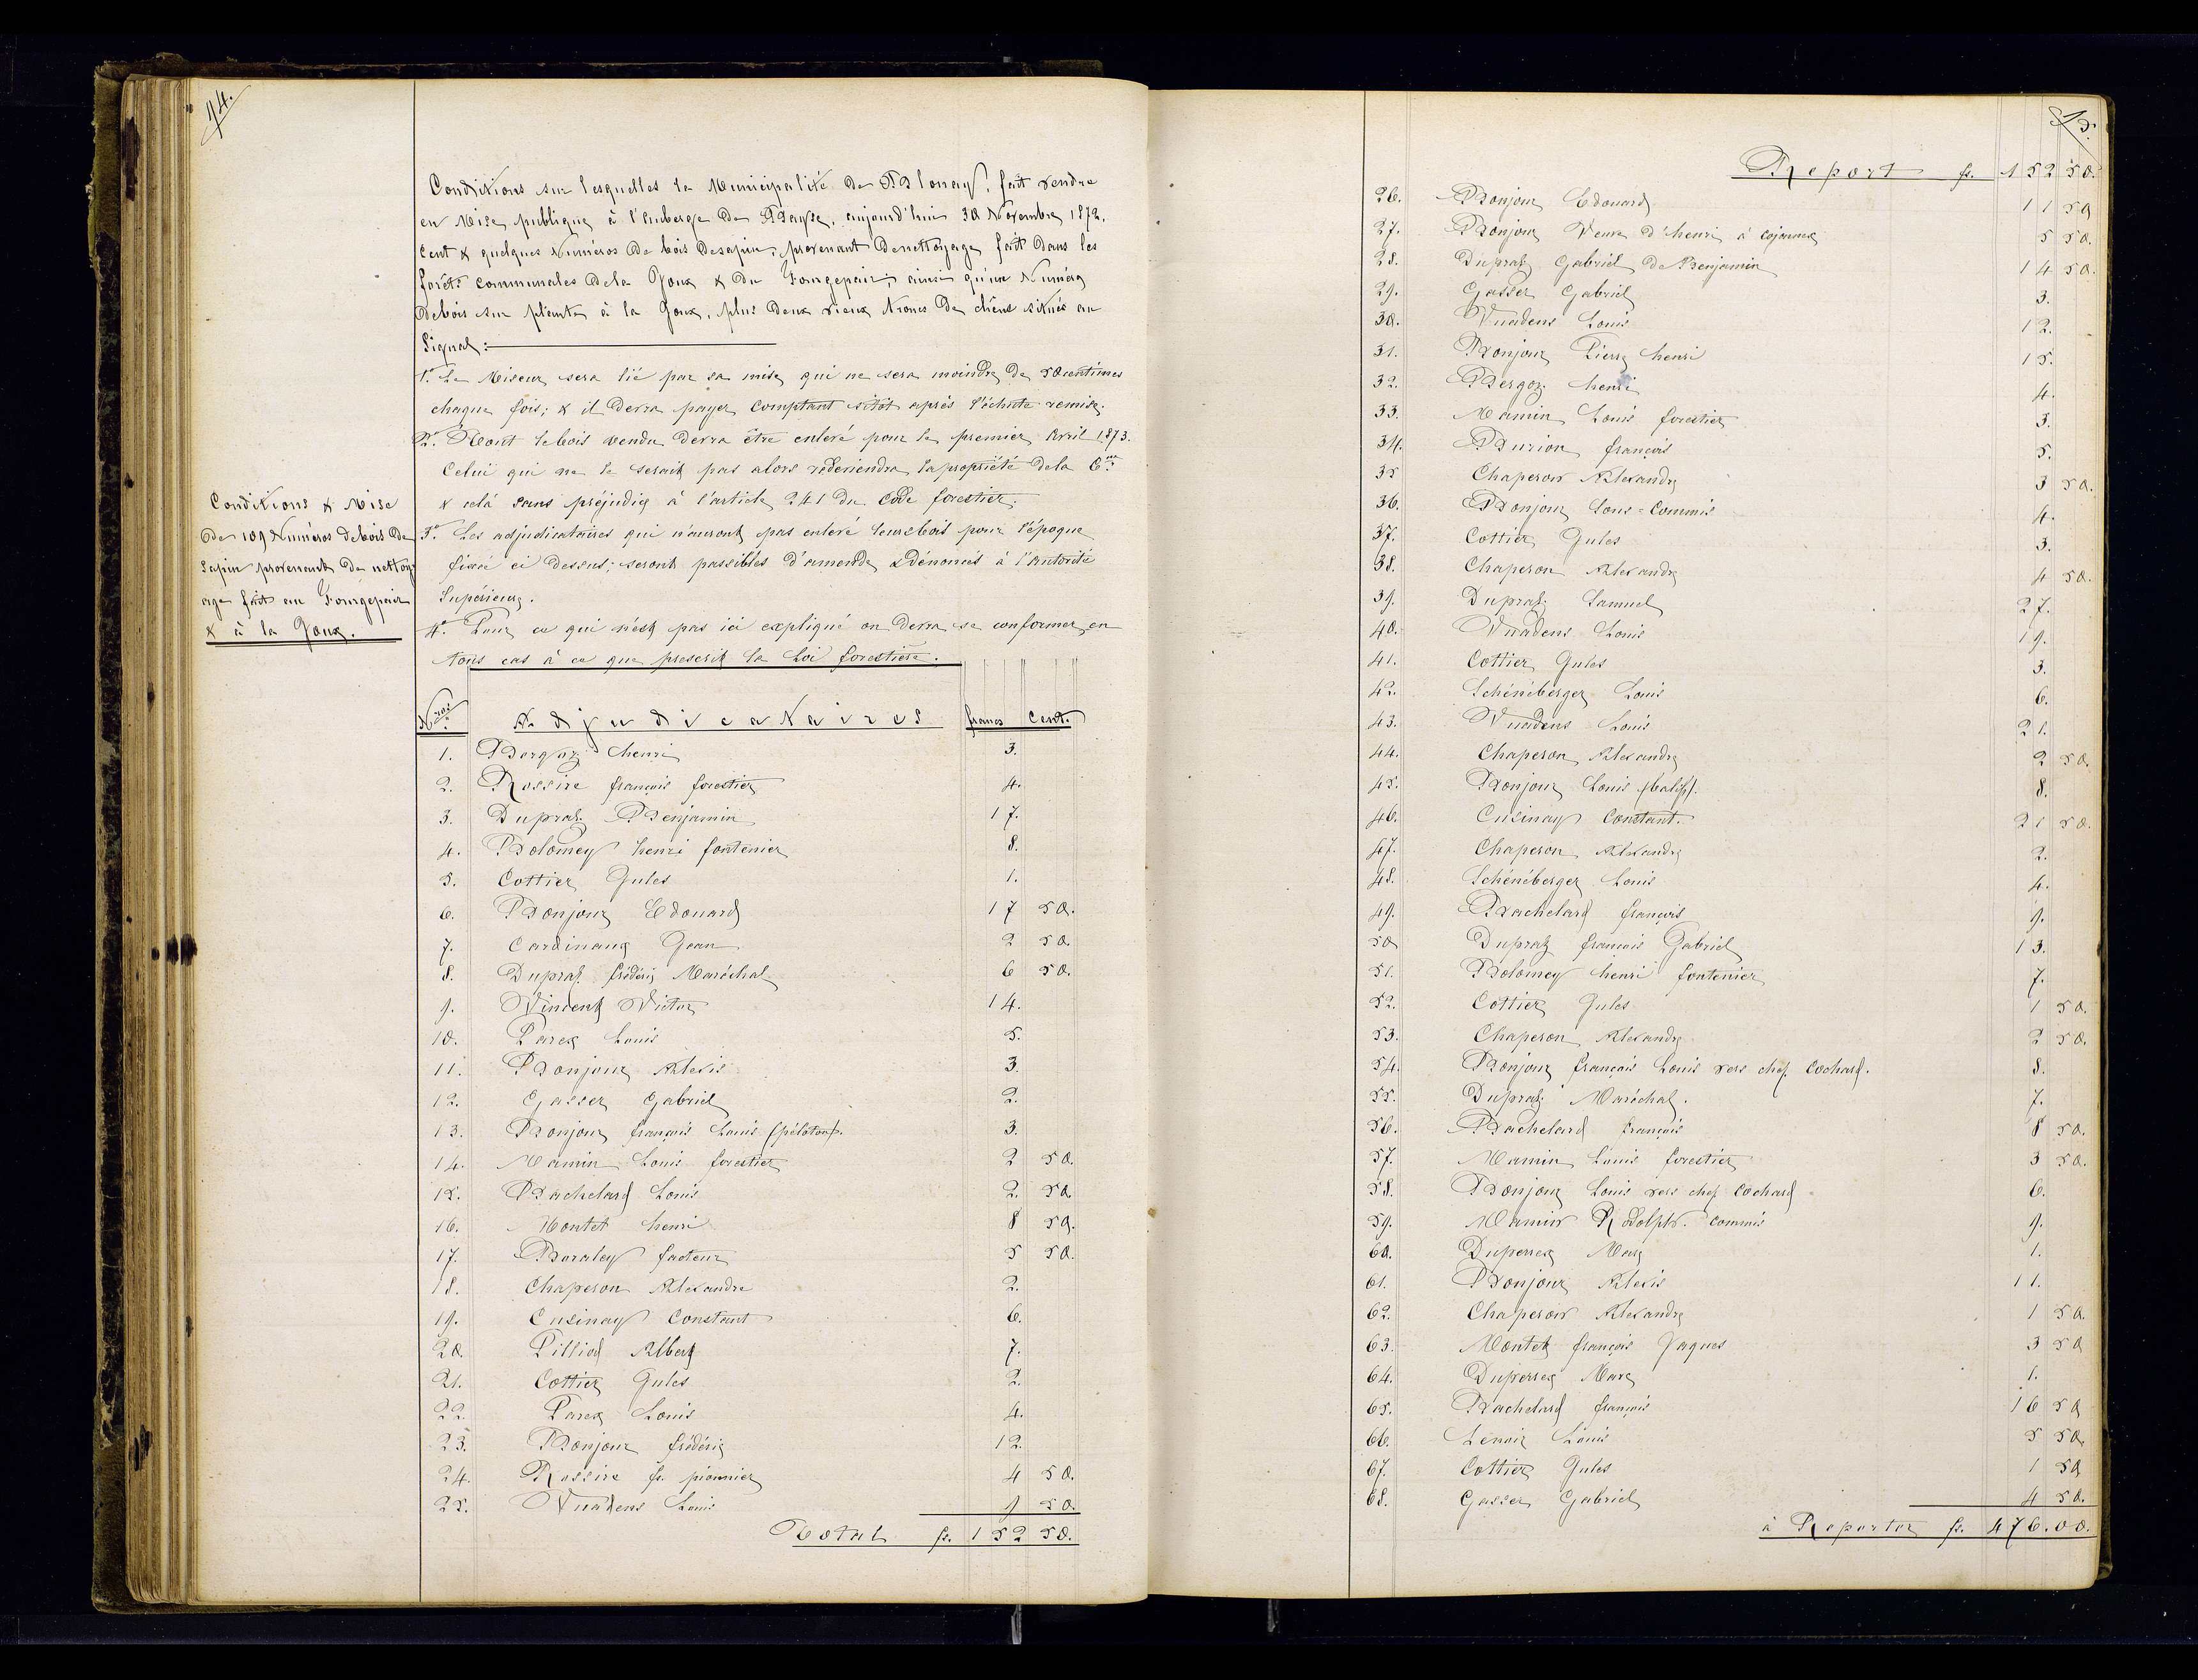 14.
Conditions sur lesquelles la Municipalité de Blonay, fait vendre
en Mise publique à l'auberge de Bayse, aujourd'hui 30 Novembre 1872,
Cent & quelques Numéros de bois de sapin, provenant de nettoyage fait dans les
forêts communales de la Joux & du Fourgepair; ainsi qu'un Numéro
de bois sur plante à la Joux, plus deux vieux troncs de chêne situés au
Signal:
1.º Le Miseur sera lié par sa mise, qui ne sera moindre de 50 centimes
chaque fois; & il devra payer comptant sitôt après l'échute remise.
2.º Tout le bois vendu devra être enlevé pour le premier Avril 1873.
Celui qui ne le serait pas alors redeviendra la propriété de la C.ne
& celà sans préjudice à l'article 241 du Code forestier.
Conditions & Mise
de 109 Numéros de bois de
Sapin provenant de nettoy-
age fait au Fourgepair
& à la Joux.
3.º Les adjudicataires qui n'auront pas enlevé leurs bois pour l'époque
fixée ci dessus; seront passibles d'amende & dénoncés à l'autorité
Supérieure.
4.º Pour ce qui n'est pas ici expliqué on devra se conformer en
tous cas à ce que prescrit la Loi forestière.
N.ros Adjudicataires francs Cent.
1. Bergoz Henri 3.
2. Rossire françois forestier 4.
3. Dupraz Benjamin 17.
4. Bolomey henri fontenier 8.
5. Cottier Jules 1.
6. Bonjour Edouard 17 50.
7. Cardinaux Jean 2 50.
8. Dupraz frédéric Maréchal 6 50.
9. Vincent Victor 14.
10. Parex Louis 5.
11. Bonjour Alexis 3.
12. Gasser Gabriel 2.
13. Bonjour françois Louis (péloton). 3.
14. Mamin Louis forestier 2 50.
15. Bachelard Louis 2. 50
16. Montet henri 8 50.
17. Boraley facteur 5 50.
18. Chaperon Alexandre 2.
19. Cusinay Constant 6.
20. Pilliod Albert 7.
21. Cottier Jules 2.
22. Parex Louis 4.
23. Bonjour frédéric 12.
24. Rossire fs. pionnier 4 50.
25. Vuadens Louis 9 50.
Total fr. 152 50.
15.
Report fr. 152 50.
26. Bonjour Edouard 11 50
27. Bonjour Veuve d'henri à Cojonnex 5 50.
28. Dupraz Gabriel de Benjamin 14 50.
29. Gasser Gabriel 3.
30. Vuadens Louis 12.
31. Bonjour Pierre henri 15.
32. Bergoz henri 4.
33. Mamin Louis forestier 3.
34. Burion françois 5.
35 Chaperon Alexandre 3 50.
36. Bonjour Sous-Commis 4.
37. Cottier Jules 3.
38. Chaperon Alexandre 4 50.
39. Dupraz Samuel 27.
40. Vuadens Louis 19.
41. Cottier Jules 3.
42. Schénéberger Louis 6.
43. Vuadens Louis 21.
44. Chaperon Alexandre 2 50.
45. Bonjour Louis (balif). 8.
46. Cusinay Constant. 21 50.
47. Chaperon Alexandre 2.
48. Schénéberger Louis 4.
49. Bachelard françois 9.
50 Dupraz françois Gabriel 13.
51. Bolomey henri fontenier 7.
52. Cottier Jules 1 50.
53. Chaperon Alexandre 2 50.
54. Bonjour françois Louis vers chez Cochard. 8.
55. Dupraz Maréchal. 7.
56. Bachelard françois 8 50.
57. Mamin Louis forestier 3 50.
58. Bonjour Louis vers chez Cochard 6.
59. Mamin Rodolph. commis 9.
60. Duperrex Marc 1.
61. Bonjour Alexis 11.
62. Chaperon Alexandre 1 50.
63. Montet françois Jaques 3 50
64. Duperrex Marc 1.
65. Bachelard françois 16 50
66. Lenoir Louis 5 50.
67. Cottier Jules 1 50
68. Gasser Gabriel 4 50.
à Reporter fr. 476.00.